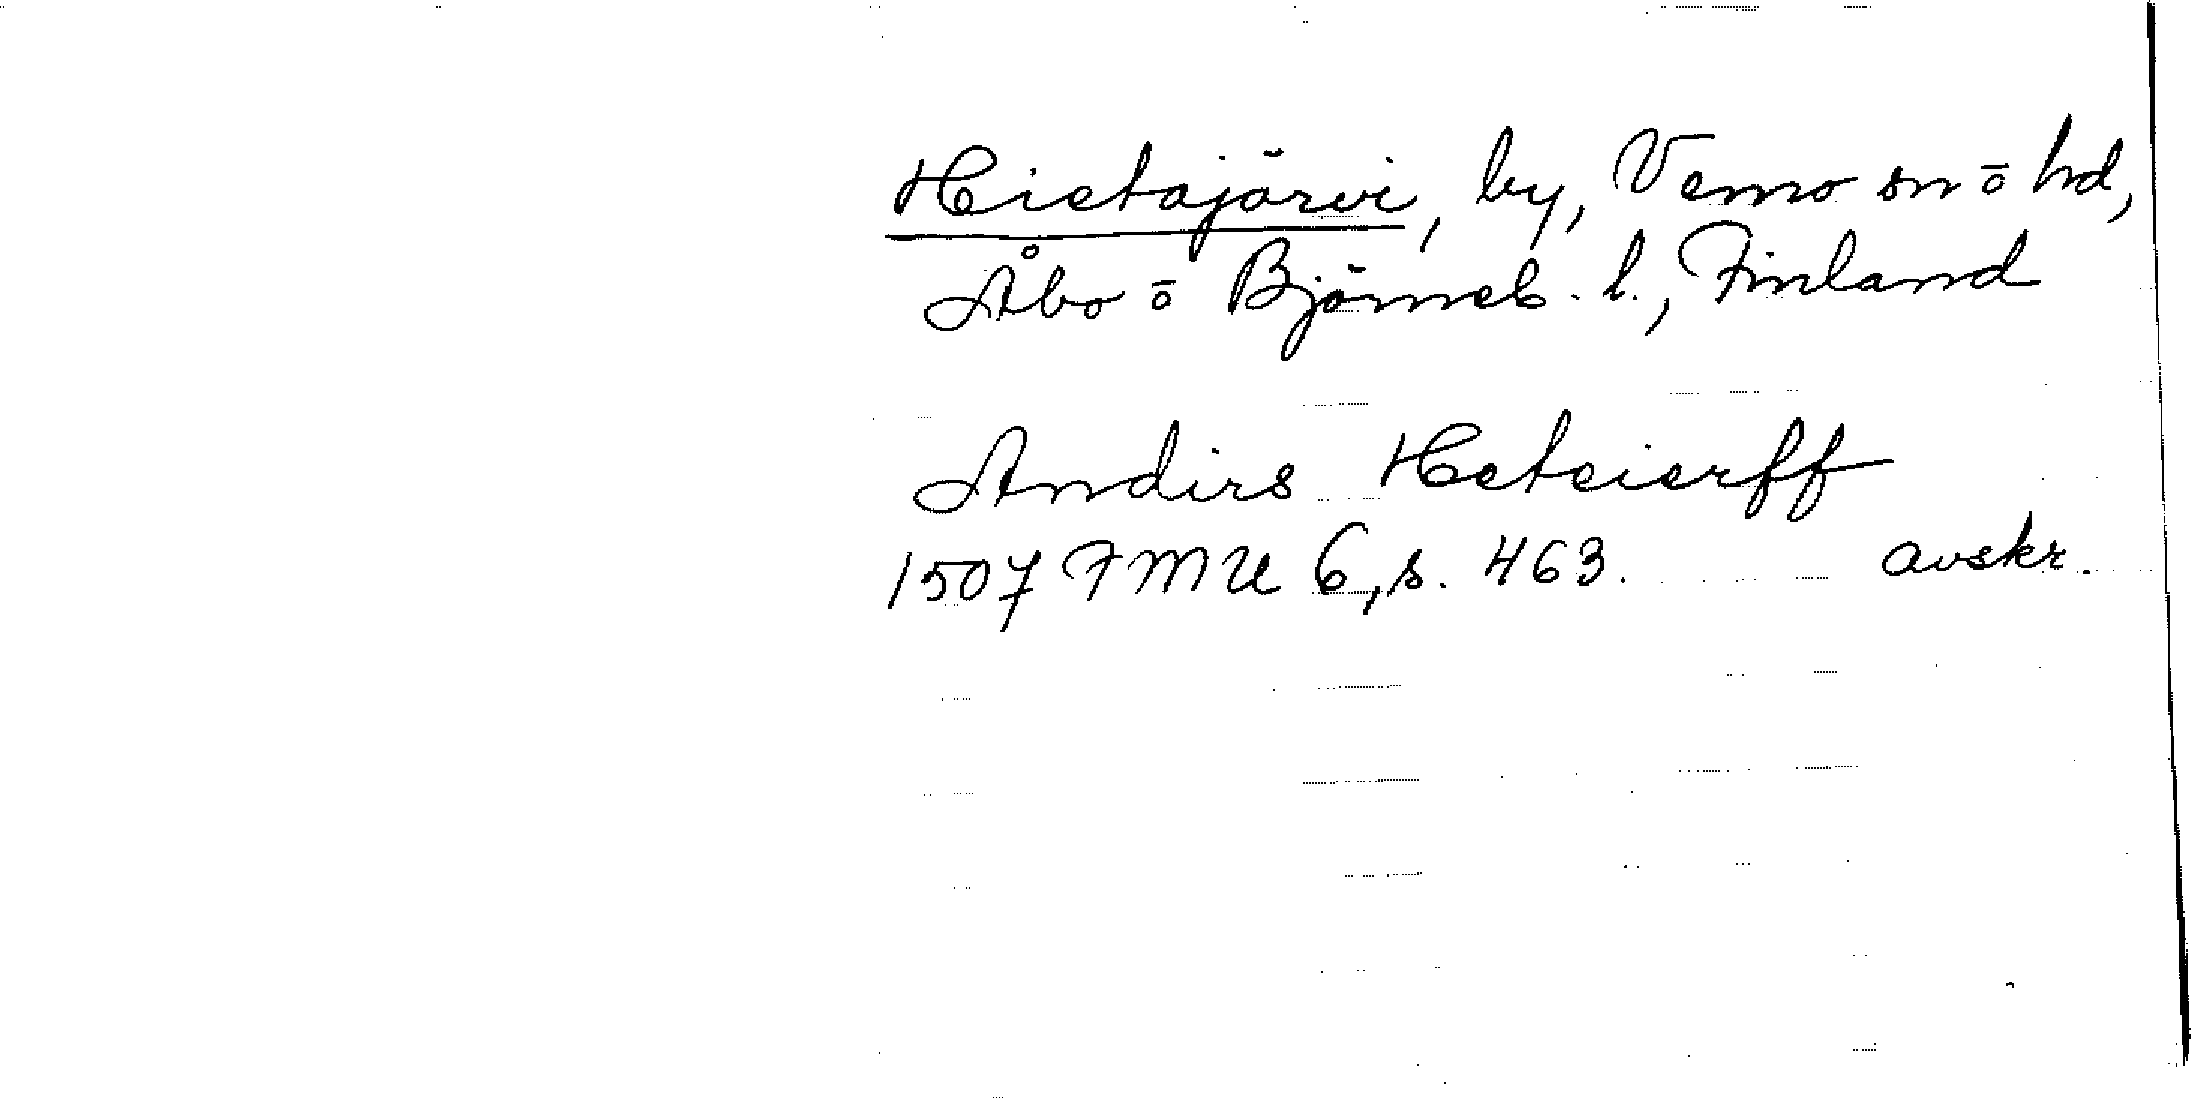 Hietajärvi, by, Vemo sn ō hd,
Åbo ō Björneb. l., Finland
Andirs Heteierff
1507 FMU 6, s. 463. avskr.